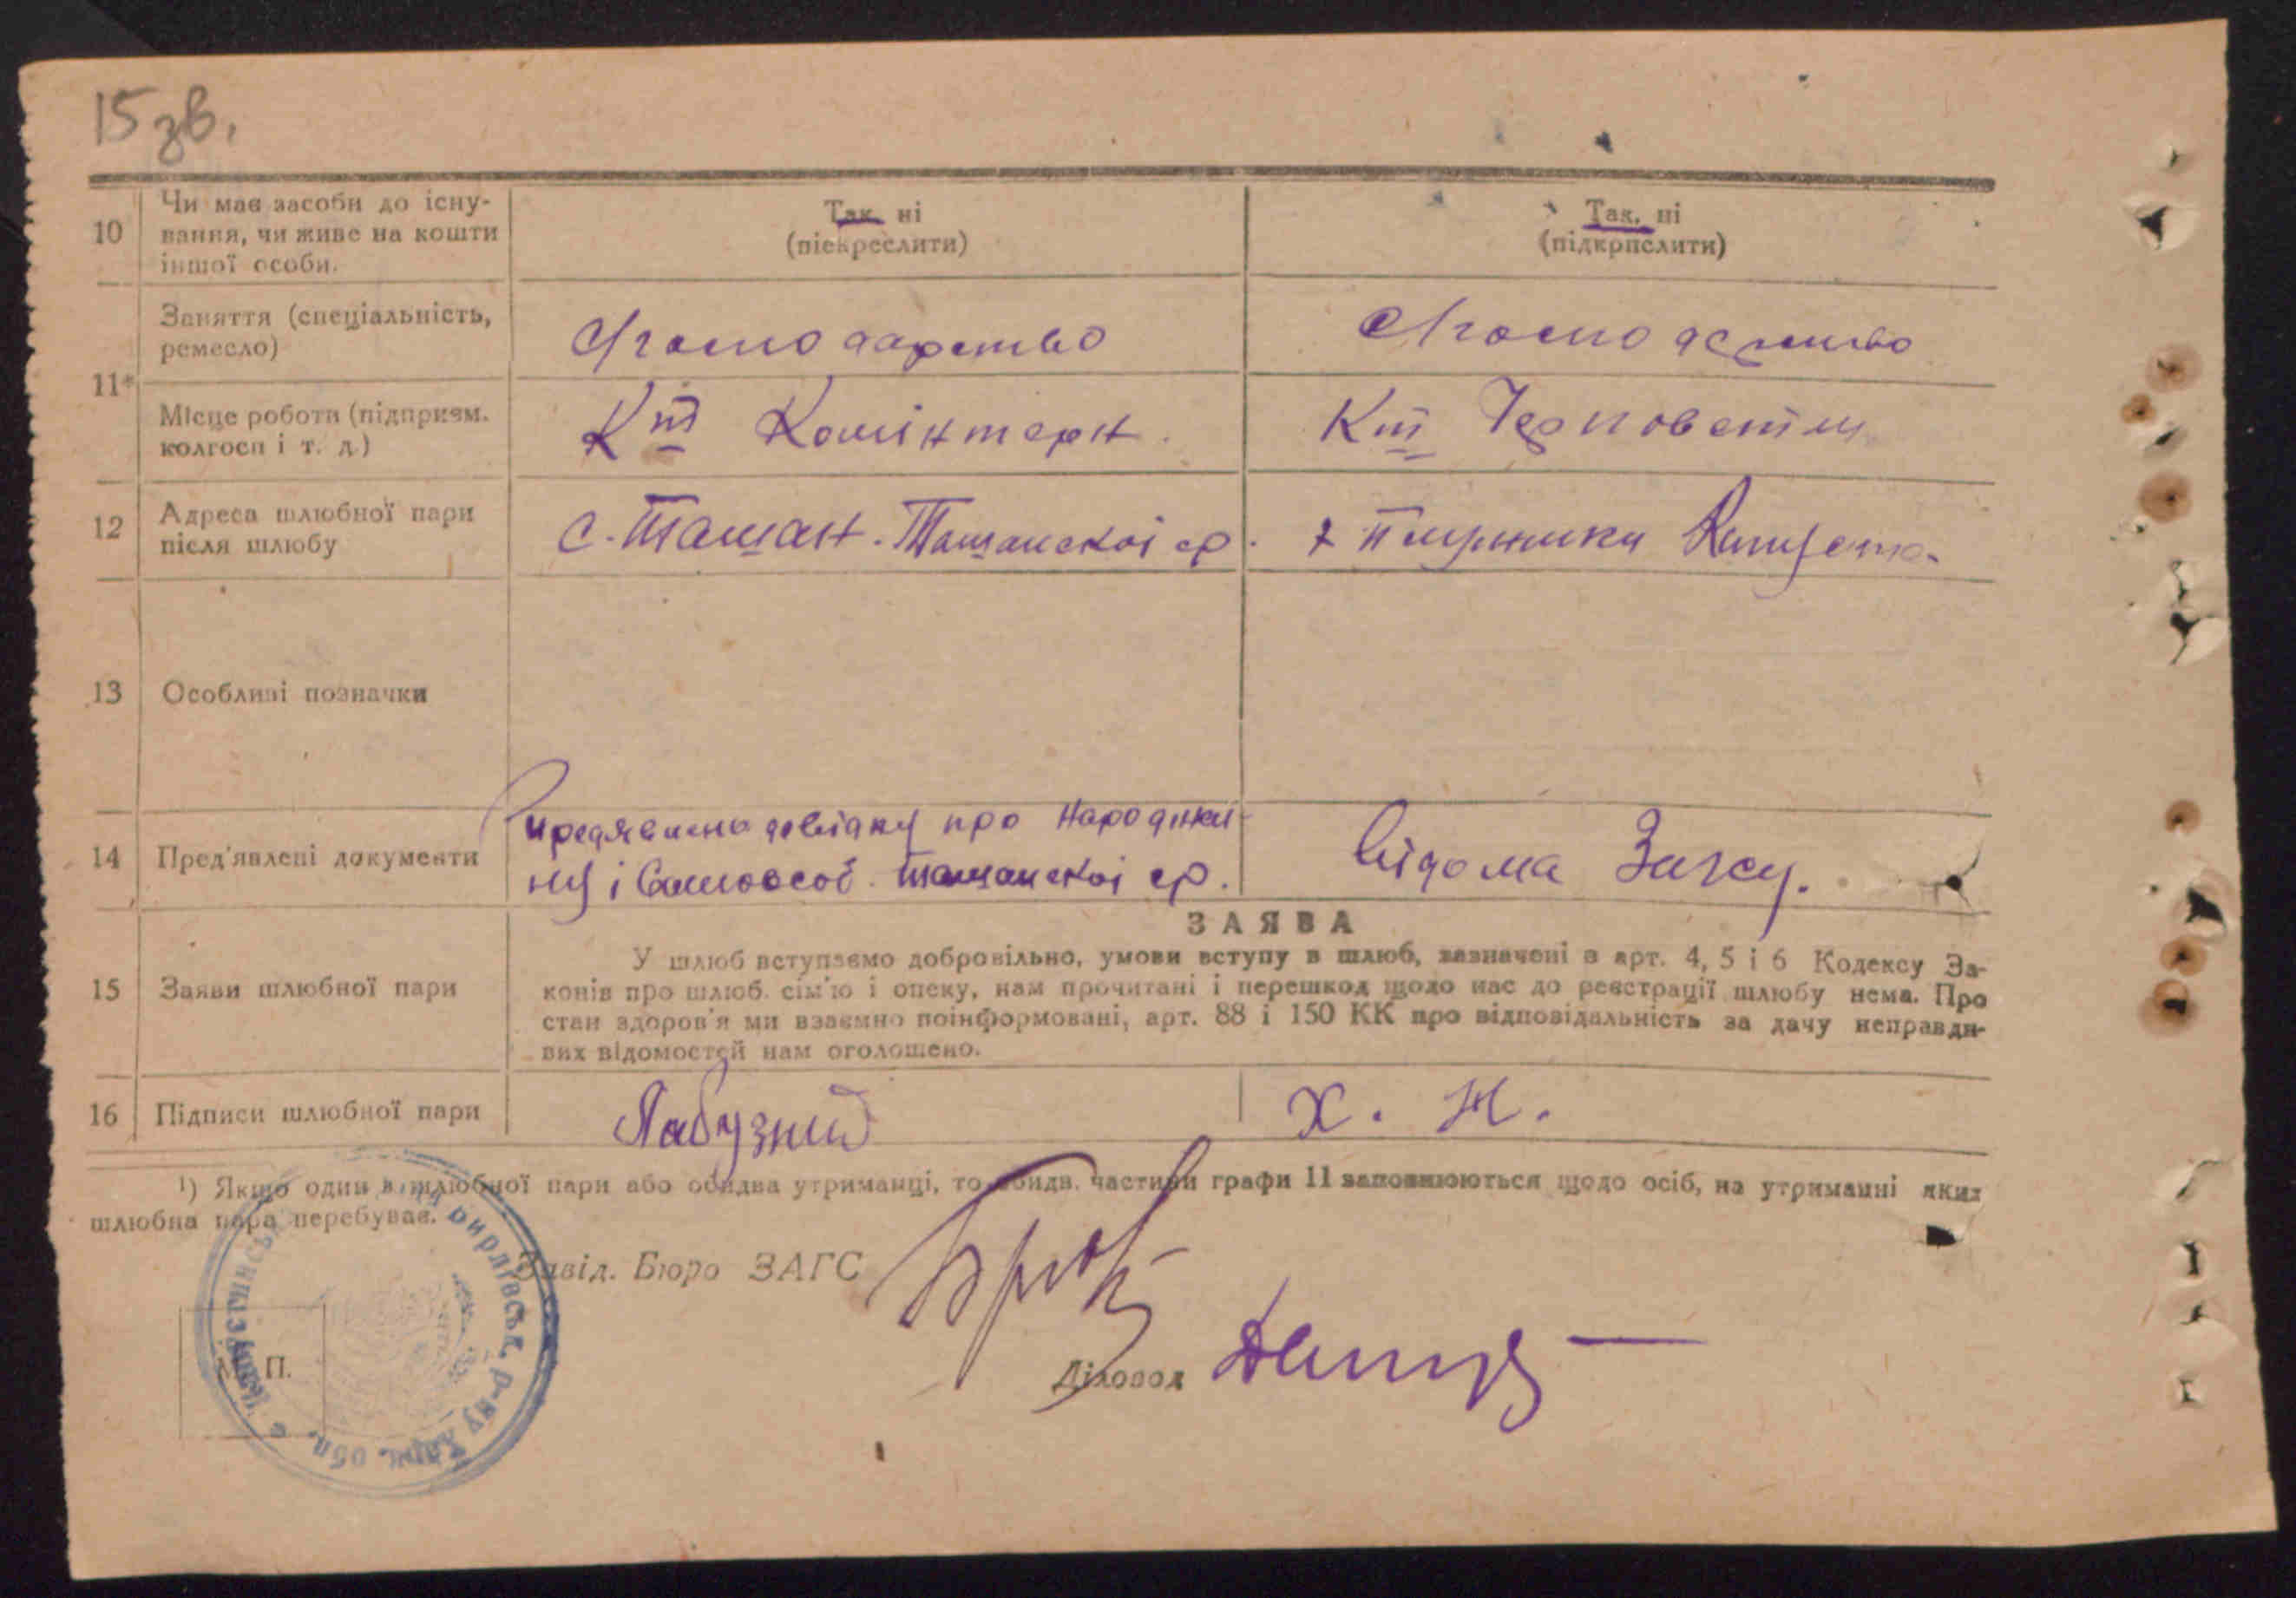 15 зв.
10
Чи має засоби до існу-
вання, чи живе на кошти
іншої особи.
Так ні
(піекреслити)
Так, ні
(підкрпслити)
11*
Заняття (спеціальність,
ремесло)
С/господарство
С/господарство
Місце роботи (підприєм.
колгосп і т. д.)
Кт Комінтерн.
Кт
12
Адреса шлюбної пари
після шлюбу
с. Ташан. Ташанскої ср.
х
13
Особливі позначки
14
Пред'явлені документи
довідку про народжен-
ну і Ташанскої ср.
Відома Загсу.
ЗАЯВА
15
Заяви шлюбної пари
У шлюб вступаємо добровільно, умови вступу в шлюб, зазначені в арт. 4, 5 і 6 Кодексу За-
конів про шлюб. сім'ю і опеку, нам прочитані і перешкод щодо нас до реєстрації шлюбу нема. Про
стан здоров'я ми взаємно поінформовані, арт. 88 і 150 КК про відповідальність за дачу неправди-
вих відомостей нам оголошено.
16
Підписи шлюбної пари
Лабузний
Х. Ж.
¹) Якщо один в шлюбної пари або обидва утриманці, то обидв. частини графи 11 заповнюються щодо осіб, на утриманні яких
шлюбна пара перебуває.
Завід. Бюро ЗАГС
М. П.
Діловод
р-ну Харк. обл.